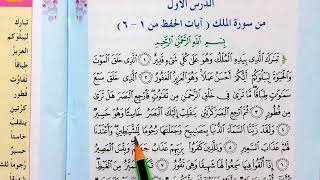 الدرس الأول
من سورة الملك ( آيات الحفظ من ١ - ٦ )
بِسْمِ اللَّهِ الرَّحْمَٰنِ الرَّحِيمِ
تَبَٰرَكَ ٱلَّذِى بِيَدِهِ ٱلْمُلْكُ وَهُوَ عَلَىٰ كُلِّ شَىْءٍ قَدِيرٌ ١ ٱلَّذِى خَلَقَ ٱلْمَوْتَ
وَٱلْحَيَوٰةَ لِيَبْلُوَكُمْ أَيُّكُمْ أَحْسَنُ عَمَلًا وَهُوَ ٱلْعَزِيزُ ٱلْغَفُورُ ٢ ٱلَّذِى خَلَقَ سَبْعَ
سَمَٰوَٰتٍ طِبَاقًا مَّا تَرَىٰ فِى خَلْقِ ٱلرَّحْمَٰنِ مِن تَفَٰوُتٍ فَٱرْجِعِ ٱلْبَصَرَ هَلْ تَرَىٰ مِن
فُطُورٍ ٣ ثُمَّ ٱرْجِعِ ٱلْبَصَرَ كَرَّتَيْنِ يَنقَلِبْ إِلَيْكَ ٱلْبَصَرُ خَاسِئًا وَهُوَ حَسِيرٌ
٤ وَلَقَدْ زَيَّنَّا ٱلسَّمَآءَ ٱلدُّنْيَا بِمَصَٰبِيحَ وَجَعَلْنَٰهَا رُجُومًا لِّلشَّيَٰطِينِ وَأَعْتَدْنَا
لَهُمْ عَذَابَ ٱلسَّعِيرِ ٥ وَلِلَّذِينَ كَفَرُوا۟ بِرَبِّهِمْ عَذَابُ جَهَنَّمَ وَبِئْسَ ٱلْمَصِيرُ
٦ إِذَآ أُلْقُوا۟ فِيهَا سَمِعُوا۟ لَهَا شَهِيقًا وَهِىَ تَفُورُ ٧ تَكَادُ تَمَيَّزُ مِنَ ٱلْغَيْظِ
تبارك
ليبلوكم
العزيز
طباقًا
تفاوت
فطور
كرتين
ينقلب
خاسئًا
حسير
رجومًا